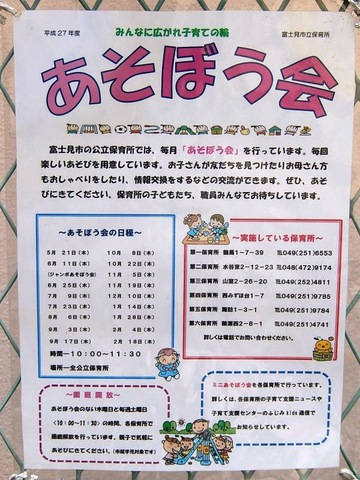 平成27年度
みんなに広がれ子育ての輪
富士見市立保育所
あそぼう会
富士見市の公立保育所では、毎月「あそぼう会」を行っています。毎回
楽しいあそびを用意しています。お子さんが友だちを見つけたりお母さん方
もおしゃべりをしたり、情報交換をするなどの交流ができます。ぜひ、あそ
びにきてください。保育所の子どもたち、職員みんなでお待ちしています。
～あそぼう会の日程～
5月 21日(木) 10月 8日(木)
6月 11日(木) 10月 22日(木)
(ジャンボあそぼう会) 11月 5日(木)
6月 25日(木) 11月 19日(木)
7月 9日(木) 12月 10日(木)
7月 23日(木) 1月 14日(木)
8月 6日(木) 1月 28日(木)
9月 3日(木) 2月 4日(木)
9月 17日(木) 2月 18日(木)
時間ー10:00～11:30
場所ー全公立保育所
～実施している保育所～
第一保育所 鶴馬1-7-39 ℡049(251)6553
第二保育所 水谷東2-12-23 ℡048(472)9174
第三保育所 山室2-26-20 ℡049(252)4811
第四保育所 西みずほ台1-7 ℡049(251)9785
第五保育所 ℡049(251)9784
第六保育所 ℡049(251)4741
詳しくは電話でお問い合わせください。
～園庭開放～
あそぼう会のない木曜日と毎週土曜日
<10:00～11:30>の時間、各保育所で
園庭開放を行っています。親子で気軽に
あそびにきてください。
ミニあそぼう会を各保育所で行っています。
詳しくは、各保育所の子育て支援ニュースや
子育て支援センターのふじみkids通信で
お知らせしています。